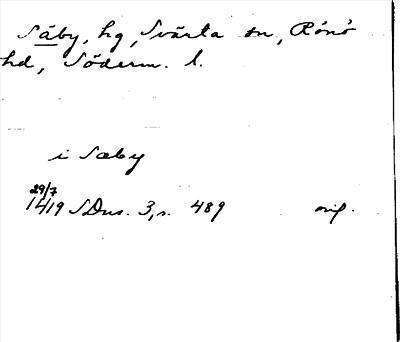 Säby, hg, Svärta sn, Rönö
hd, Söderm. l.
i Sæby
29/7
1419 SDns. 3, s. 489 orig.